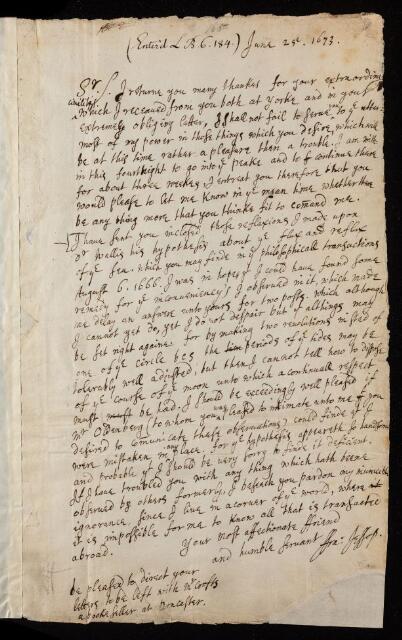 (Enter'd L B. 6. 184.) June 25t. 1673.
Sr. I returne you many thankes for your extraordin
civilitys, which I received from you both at Yorke and in yor
extremely obliging letter, I shall not fail to serve yu to ye utter
most of my power in those things which you desire, which will
be at this time rather a pleasure then a trouble. I am with
in this fourtnight to go into ye Peake and to continue there
for about three weekes I entreat you therefore that you
would please to let me know in ye mean time whether there
be any thing more that you thinke fit to comand me.
I have sent you inclosed, those reflexions I made upon
Dr Wallis his hypothesis about ye flux and reflux
of ye sea. which you may finde in ye philosophicall transactions
August 6. 1666. I was in hopes I could have found some
remedy for ye inconveniency I observed in it, which made
me delay an answere unto yours for two posts. which although
I cannot yet do, yet I do not despair but if all things may
be set right againe for by making two revolutions insted of
one of ye circle the periods of ye tides may be
tolerably well adjusted, but then I cannot tell how to dispose
of ye course of ye moon unto which a continuall respect
must be had. I should be exceedingly well pleased if
Mr Oldenberg (to whom you pleased to intimate unto me if you
desired to comunicate these observations) could finde yt I
were mistaken in any place. for ye hypothesis appeareth so handsome
and probable yt I should be very sorry to finde it deficient.
If I have troubled you with any thing which hath beene
observed by others formerly, I beseech you pardon my
ignorance, since I live in a corner of ye world, where
it is impossible for me to know all that is transacted
abroad.
Your most affectionate ffriend
and humble servant Fra: Jessop.
be pleased to direct your
letters to be left with Mr Crofts
a bookeseller at Doncaster.